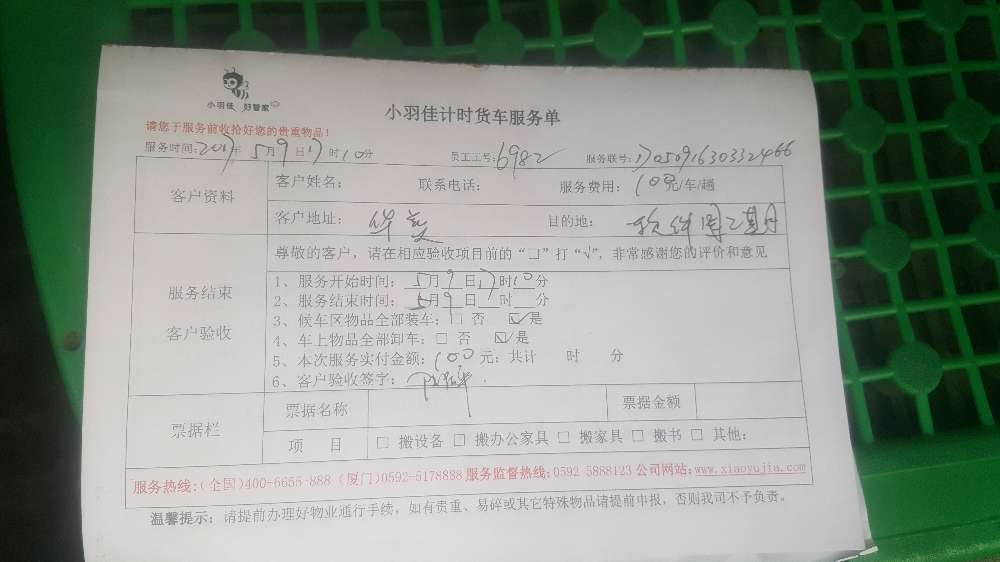 小羽佳 好管家
小羽佳计时货车服务单
请您于服务前收拾好您的贵重物品！
服务时间：2017年5月9日17时10分 员工工号：6982 服务联号：1705091630332466
客户资料
客户姓名： 联系电话： 服务费用：100元/车/趟
客户地址：华美 目的地：软件园二期
服务结束
客户验收
尊敬的客户，请在相应验收项目前的“□”打“√”，非常感谢您的评价和意见
1、服务开始时间：5月9日17时10分
2、服务结束时间：5月9日17时 分
3、候车区物品全部装车：□ 否 ☑是
4、车上物品全部卸车：□ 否 ☑是
5、本次服务实付金额：100元：共计 时 分
6、客户验收签字：
票据栏
票据名称 票据金额
项 目 □ 搬设备 □ 搬办公家具 □ 搬家具 □ 搬书 □ 其他：
服务热线：(全国)400-6655-888 (厦门)0592-5178888 服务监督热线：0592 5888123 公司网站：www.xiaoyujia.com
温馨提示：请提前办理好物业通行手续，如有贵重、易碎或其它特殊物品请提前申报，否则我司不予负责。